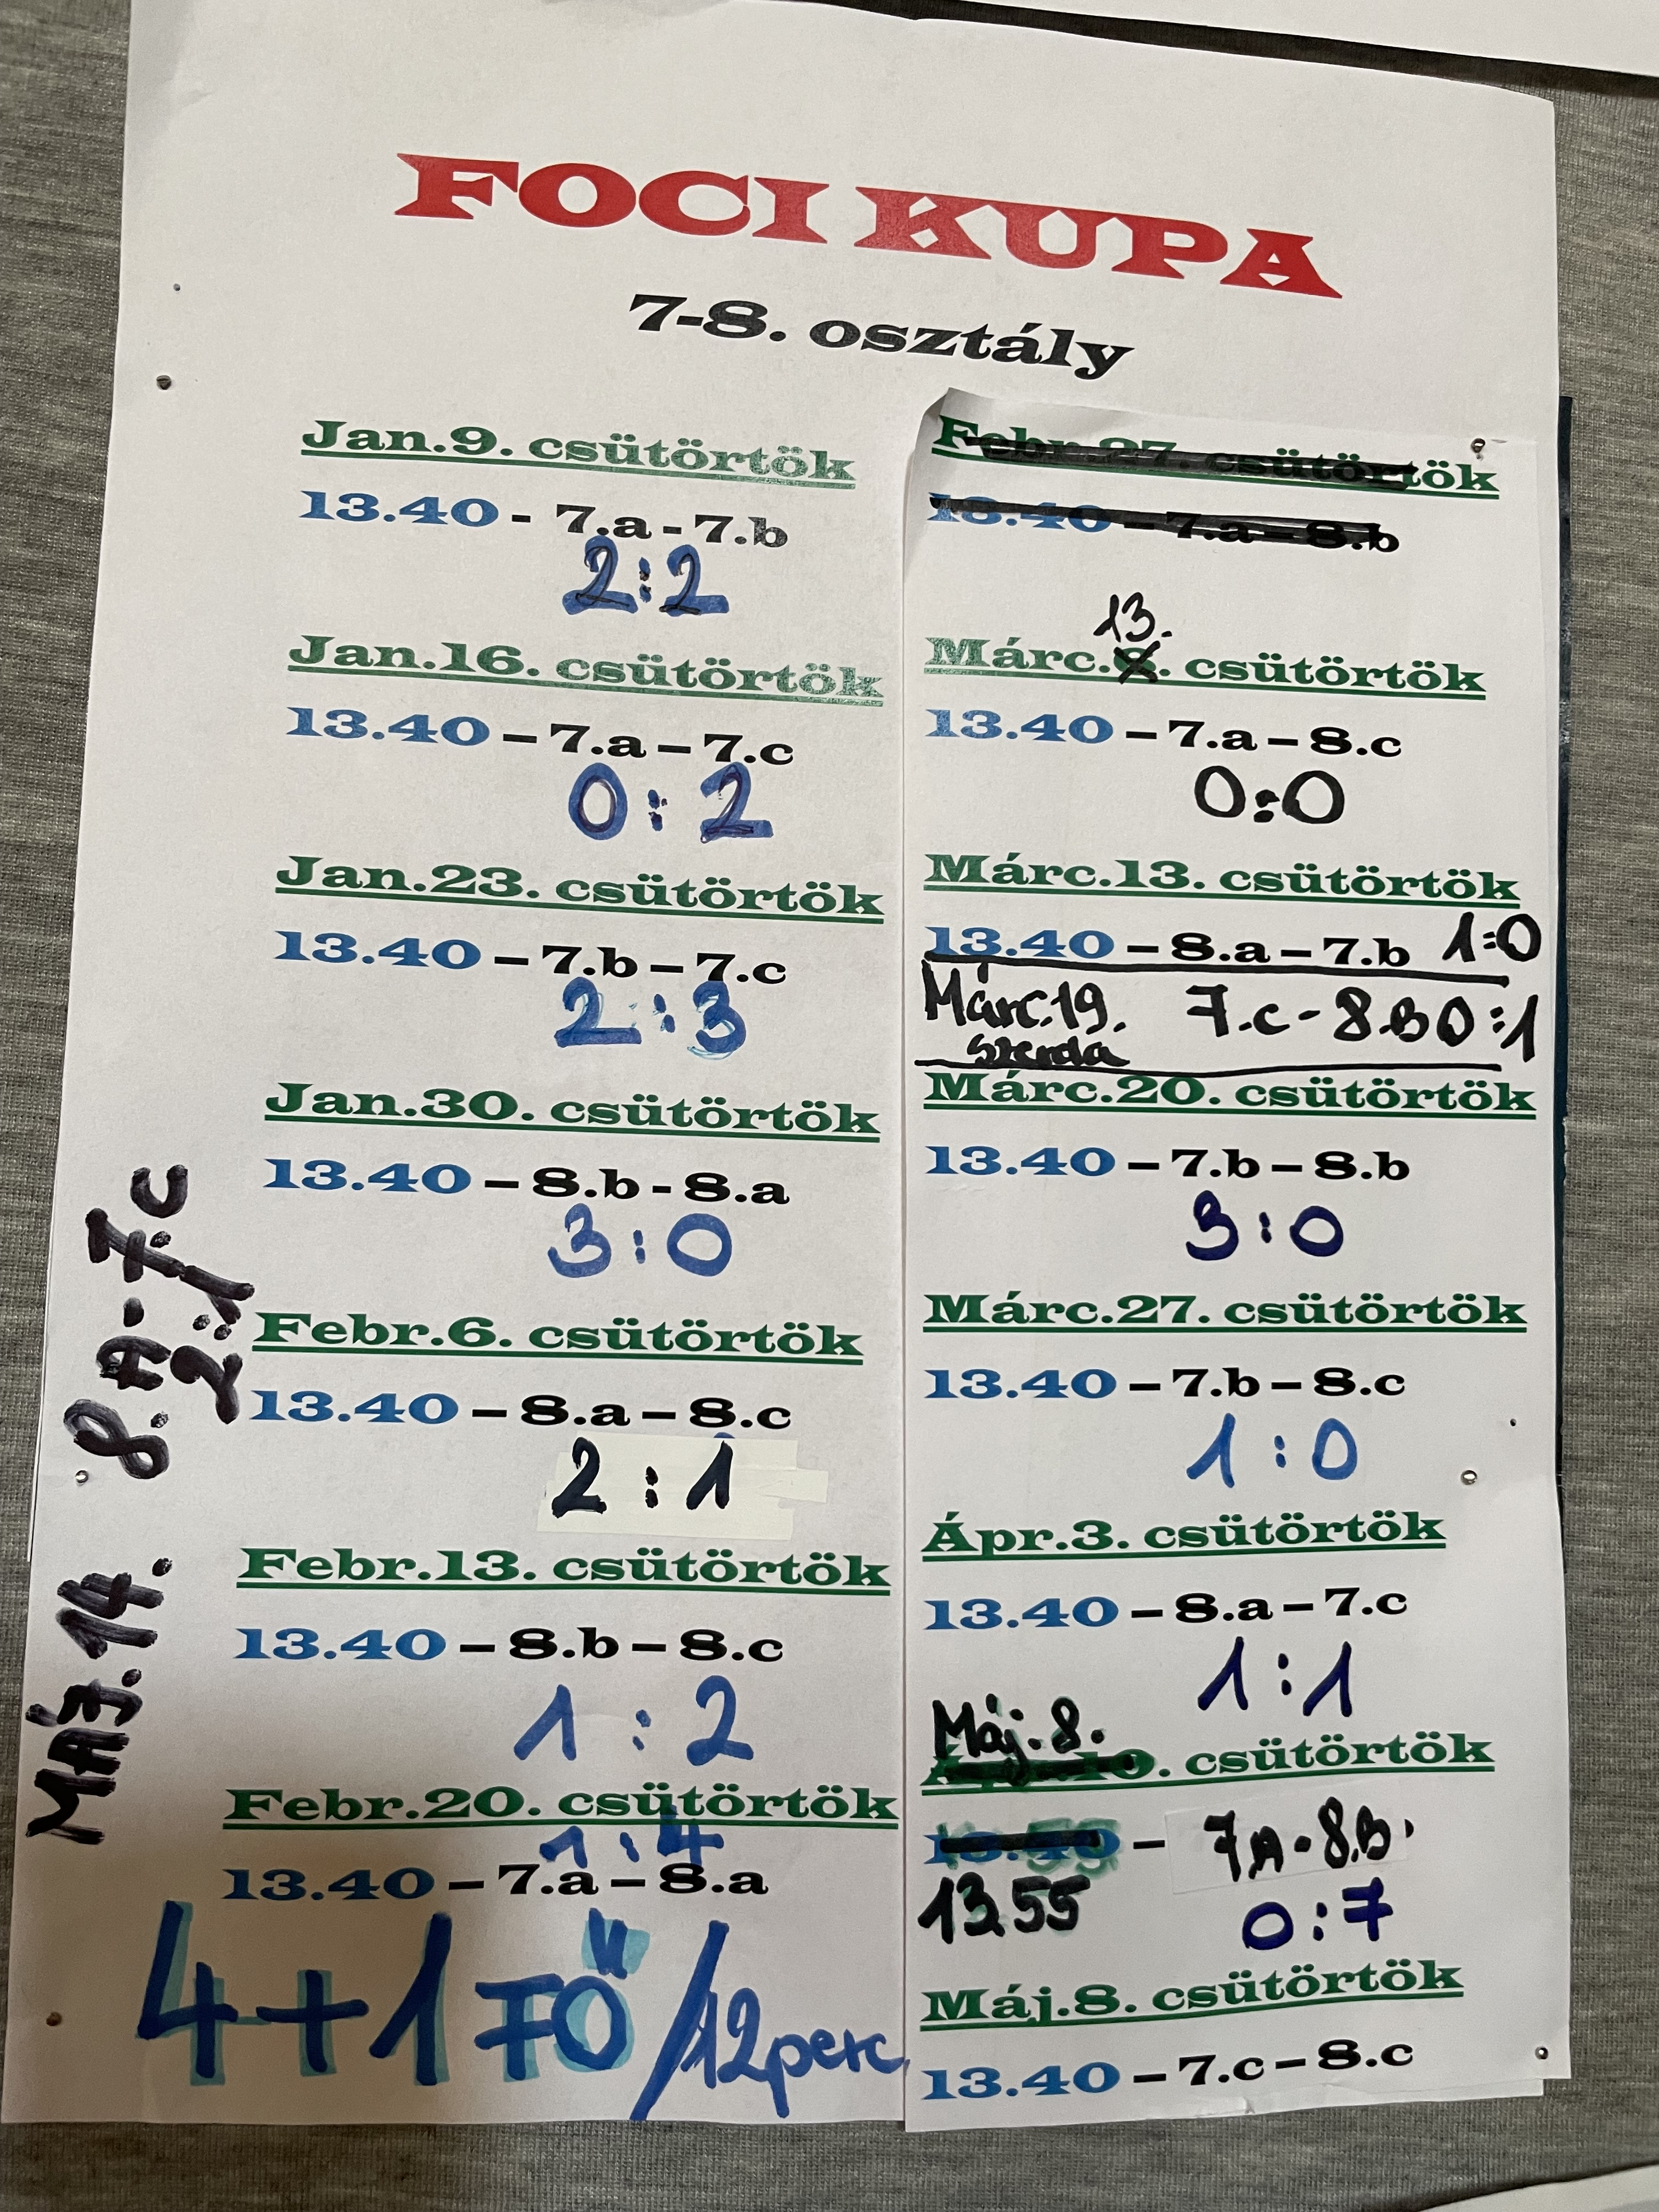 FOCI KUPA
7-8. osztály
Jan.9. csütörtök
13.40 - 7.a - 7.b
2:2
Jan.16. csütörtök
13.40 – 7.a – 7.c
0:2
Jan.23. csütörtök
13.40 – 7.b – 7.c
2:3
Jan.30. csütörtök
13.40 – 8.b - 8.a
3:0
Febr.6. csütörtök
13.40 – 8.a – 8.c
2:1
Febr.13. csütörtök
13.40 – 8.b – 8.c
1:2
Febr.20. csütörtök
1:4
13.40 – 7.a – 8.a
4+1 FŐ /12perc
MÁJ.14. 8.A-7.c
2:1
Febr.27. csütörtök
13.40 – 7.a – 8.b
13.
Márc.6. csütörtök
13.40 – 7.a – 8.c
0:0
Márc.13. csütörtök
13.40 – 8.a – 7.b 1:0
Márc.19. 7.c - 8.B 0:1
szerda
Márc.20. csütörtök
13.40 – 7.b – 8.b
3:0
Márc.27. csütörtök
13.40 – 7.b – 8.c
1:0
Ápr.3. csütörtök
13.40 – 8.a – 7.c
1:1
Máj.8.
Ápr.10. csütörtök
13.40 – 7A - 8.B.
13 55 0:7
Máj.8. csütörtök
13.40 – 7.c – 8.c